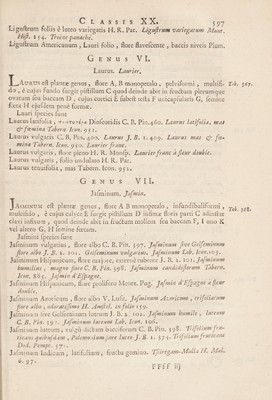 CLASSIS XX. 597
Ligustrum foliis è luteo variegatis H. R. Par. Ligustrum variegatum Munt.
Hist. 154. Troëne panaché.
Ligustrum Americanum, Lauri folio, flore flavescente, baccis niveis Plum.
GENUS VI.
Laurus. Laurier.
LAURUS est plantæ genus, flore A, B monopetalo, pelviformi, multifi- Tab. 367.
do, è cujus fundo surgit pistillum C quod deinde abit in fructum plerumque
ovatum seu baccam D, cujus cortici E subest testa F unicapsularis G, semine
fœta H ejusdem penè formæ.
Lauri species sunt
Laurus latifolia, Dioscoridis C. B. Pin. 460. Laurus latifolia, mas
& fœmina Tabern. Icon. 951.
Laurus vulgaris C. B. Pin. 460. Laurus J. B. 1. 409. Laurus mas & fœ-
mina Tabern. Icon. 950. Laurier franc.
Laurus vulgaris, flore pleno H. R. Monsp. Laurier franc à fleur double.
Laurus vulgaris, folio undulato H. R. Par.
Laurus tenuifolia, mas Tabern. Icon. 951.
GENUS VII.
Jasminum. Jasmin.
JASMINUM est plantæ genus, flore A B monopetalo, infundibuliformi, Tab. 368.
multifido, è cujus calyce E surgit pistillum D infimæ floris parti C adinstar
clavi infixum, quod deinde abit in fructum mollem seu baccam F, I uno K
vel altero G, H semine fœtum.
Jasmini species sunt
Jasminum vulgatius, flore albo C. B. Pin. 397. Jasminum sive Gelseminum
flore albo J. B. 2. 101. Gelseminum vulgatius. Jasminum Lob. Icon. 105.
Jasminum Hispanicum, flore majore, externè rubente J. B. 2. 101. Jasminum
humilius, magno flore C. B. Pin. 398. Jasminum candidiflorum Tabern.
Icon. 885. Jasmin d'Espagne.
Jasminum Hispanicum, flore prolifero Mentz. Pug. Jasmin d'Espagne à fleur
double.
Jasminum Azoricum, flore albo V. Lusit. Jasminum Azoricum, trifoliatum
flore albo, odoratissimo H. Amstel. in folio 159.
Jasminum sive Gelseminum luteum J. B. 2. 102. Jasminum humile, luteum
C. B. Pin. 397. Jasminum luteum Lob. Icon. 106.
Jasminum luteum, vulgò dictum bacciferum C. B. Pin. 398. Trifolium fru-
ticans quibusdam, Polemonium flore luteo J. B. 2. 374. Trifolium fruticans
Dod. Pempt. 571.
Jasminum Indicum, latifolium, fructu gemino. Tsjeregam-Mulla H. Mal.
6. 97.
FFFf iij